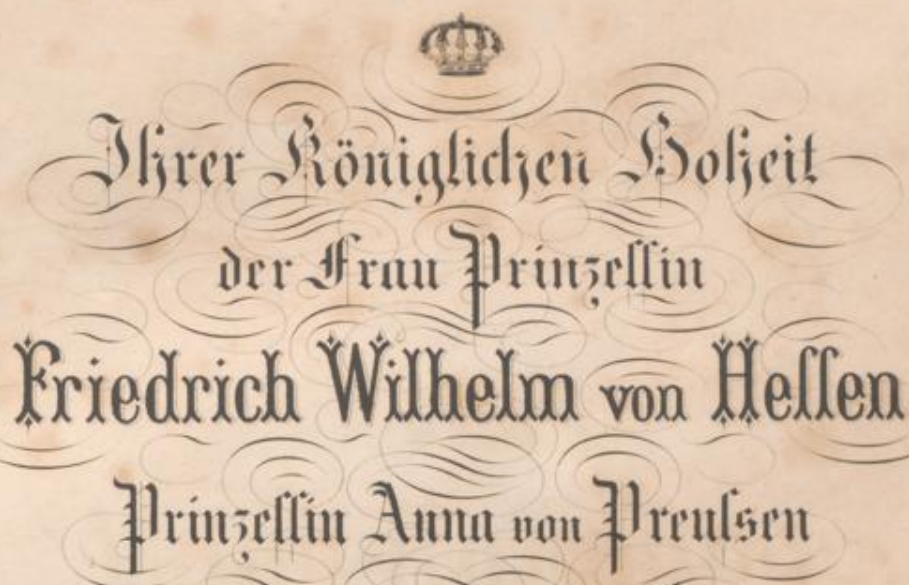 Ihrer Königlichen Hoheit
der Frau Prinzessin
Friedrich Wilhelm von Hessen
Prinzessin Anna von Preussen